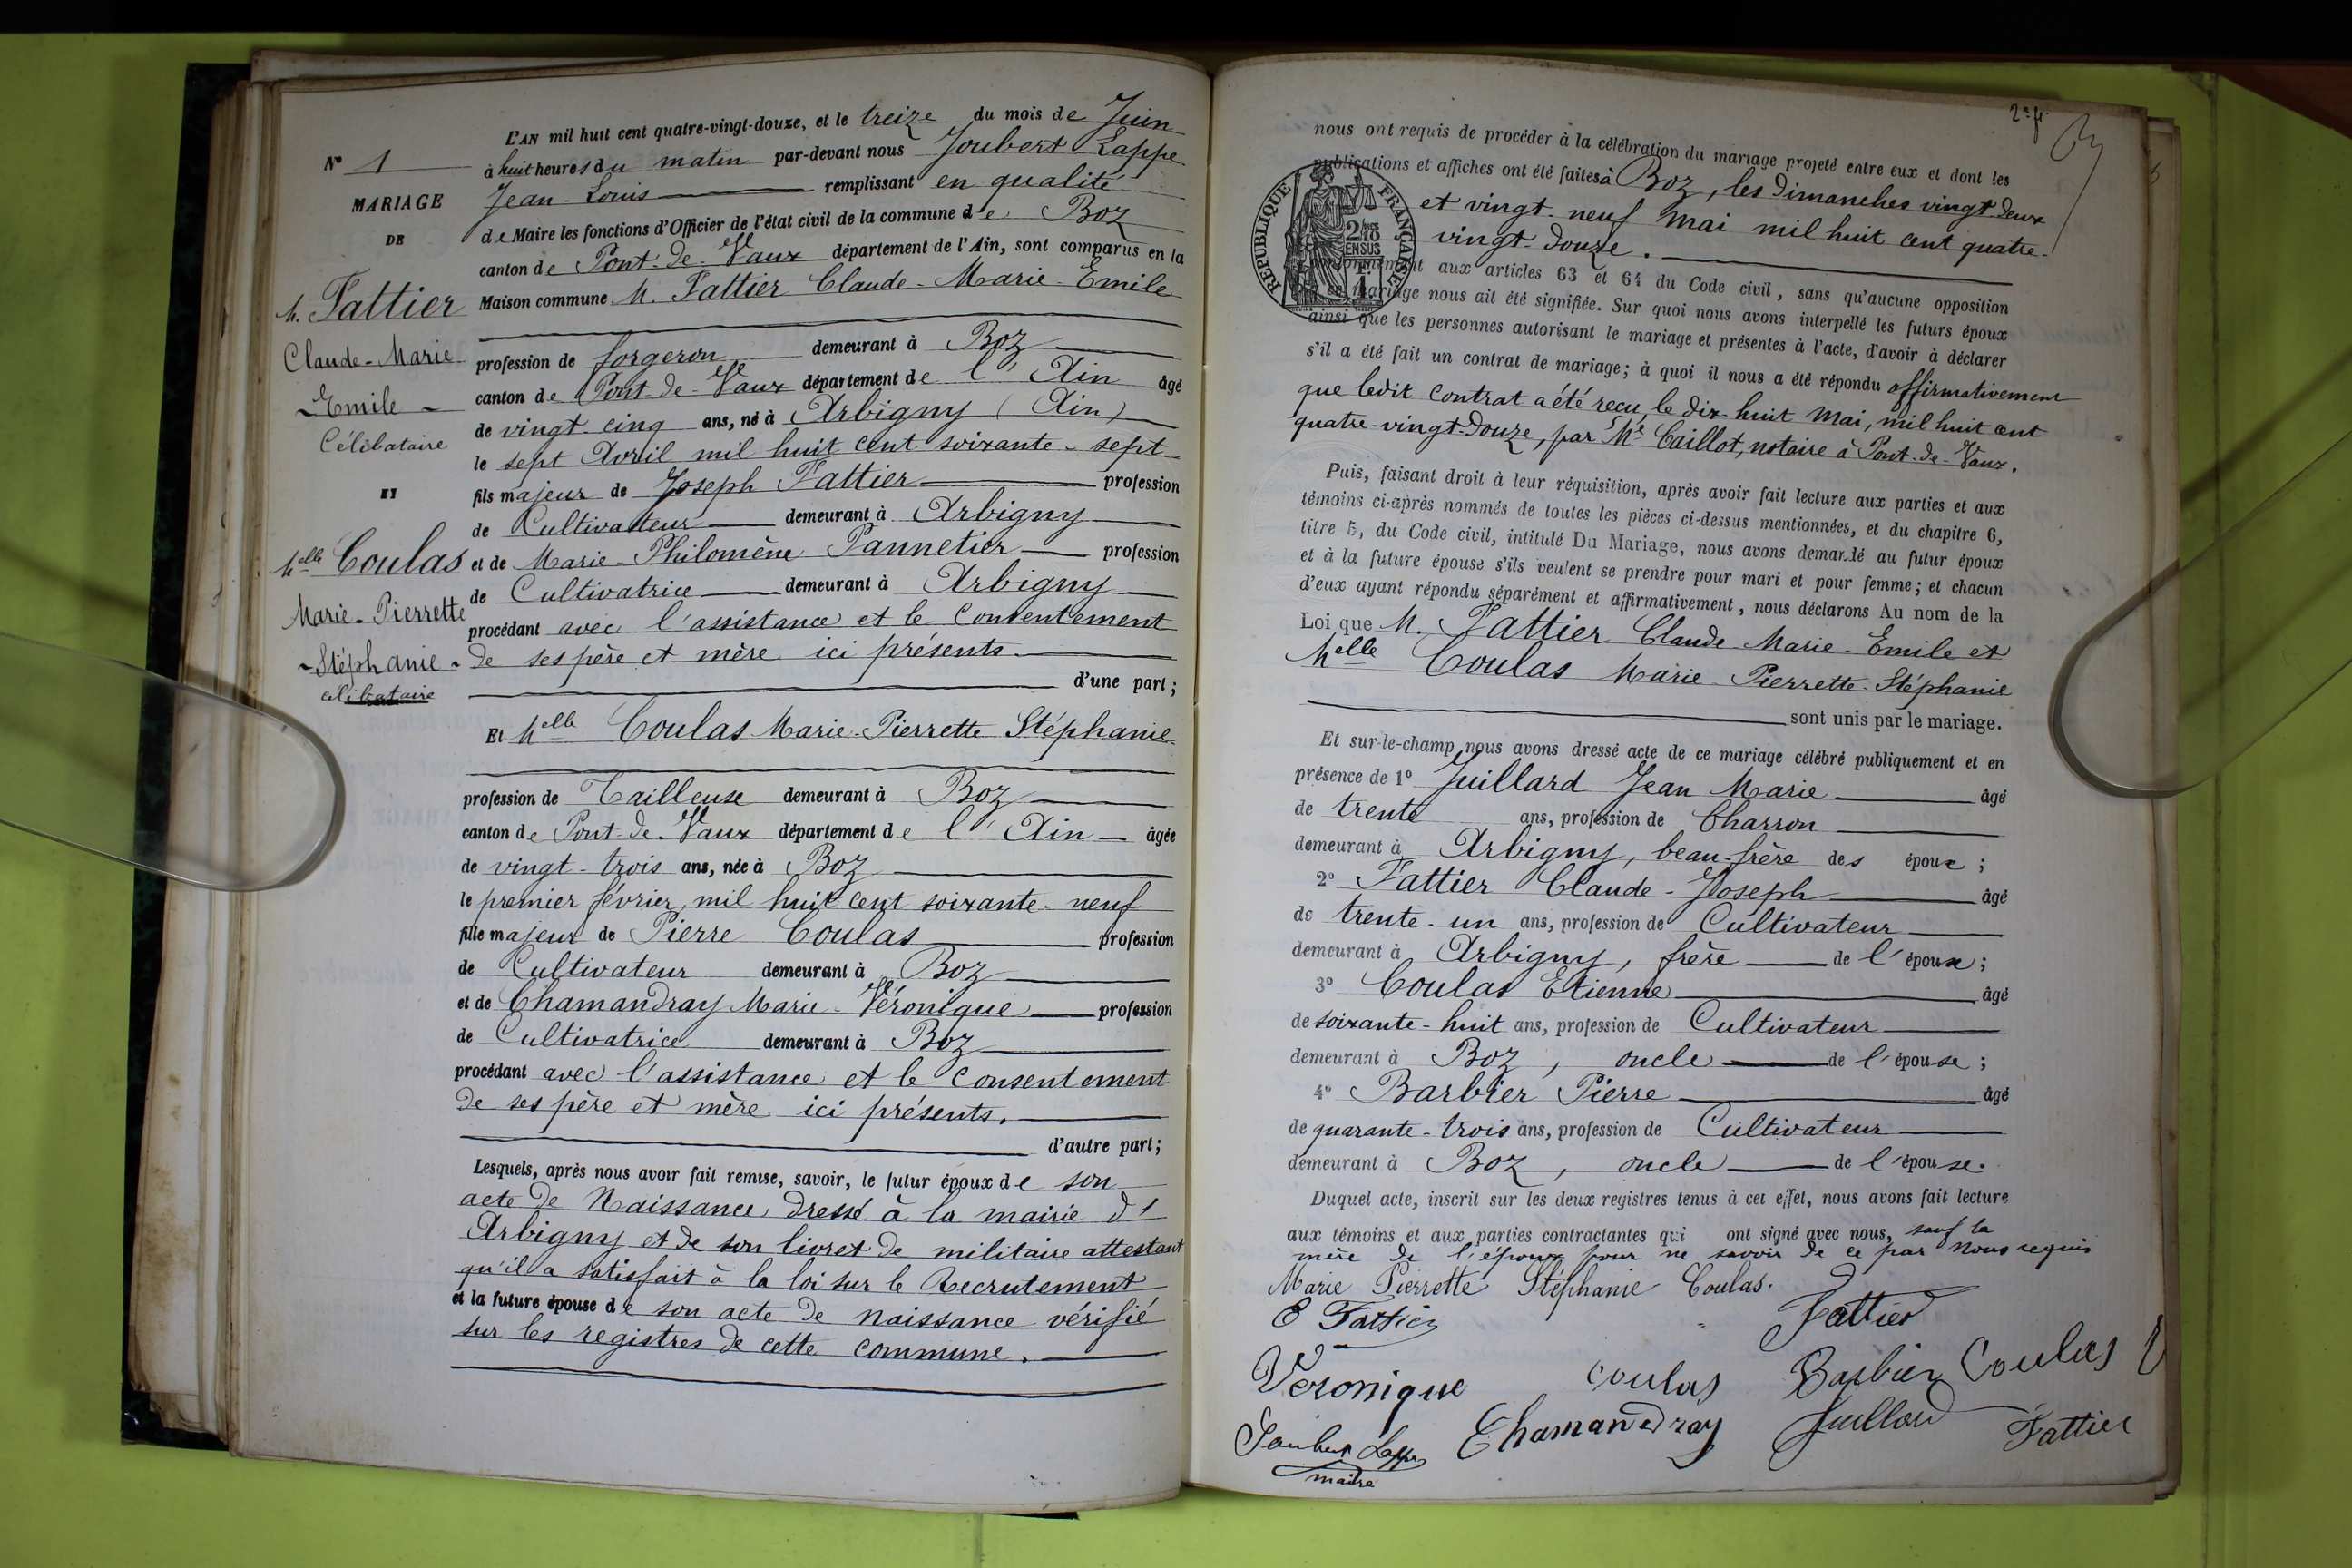 N° 1
MARIAGE
DE
M. Fattier
Claude-Marie
- Emile -
Célibataire
ET
Melle Coulas
Marie-Pierrette
- Stéphanie -
célibataire
L'AN mil huit cent quatre-vingt-douze, et le treize du mois de Juin
à huit heures du matin par-devant nous Joubert Lappe
Jean-Louis remplissant en qualité
de Maire les fonctions d'Officier de l'état civil de la commune de Boz
canton de Pont-de-Vaux département de l'Ain, sont comparus en la
Maison commune M. Fattier Claude-Marie-Emile
profession de forgeron demeurant à Boz
canton de Pont-de-Vaux département de l'Ain âgé
de vingt-cinq ans, né à Arbigny (Ain)
le sept Avril mil huit cent soixante-sept
fils majeur de Joseph Fattier profession
de Cultivateur demeurant à Arbigny
et de Marie-Philomène Pannetier profession
de Cultivatrice demeurant à Arbigny
procédant avec l'assistance et le consentement
de ses père et mère ici présents.
d'une part;
Et Melle Coulas Marie-Pierrette Stéphanie
profession de Tailleuse demeurant à Boz
canton de Pont-de-Vaux département de l'Ain âgée
de vingt-trois ans, née à Boz
le premier février, mil huit cent soixante-neuf
fille majeur de Pierre Coulas profession
de Cultivateur demeurant à Boz
et de Chamandray Marie-Véronique profession
de Cultivatrice demeurant à Boz
procédant avec l'assistance et le consentement
de ses père et mère ici présents.
d'autre part;
Lesquels, après nous avoir fait remise, savoir, le futur époux de son
acte de Naissance, dressé à la mairie d'
Arbigny et de son livret de militaire attestant
qu'il a satisfait à la loi sur le Recrutement
et la future épouse de son acte de naissance vérifié
sur les registres de cette commune.
nous ont requis de procéder à la célébration du mariage projeté entre eux et dont les
publications et affiches ont été faites à Boz, les dimanches vingt-deux
et vingt-neuf Mai mil huit cent quatre-
vingt-douze.
RÉPUBLIQUE FRANÇAISE
2/10 EN SUS
conformément aux articles 63 et 64 du Code civil, sans qu'aucune opposition
mariage nous ait été signifiée. Sur quoi nous avons interpellé les futurs époux
ainsi que les personnes autorisant le mariage et présentes à l'acte, d'avoir à déclarer
s'il a été fait un contrat de mariage; à quoi il nous a été répondu affirmativement
que ledit contrat a été reçu, le dix-huit Mai, mil huit cent
quatre-vingt-douze, par Me Caillot, notaire à Pont-de-Vaux.
Puis, faisant droit à leur réquisition, après avoir fait lecture aux parties et aux
témoins ci-après nommés de toutes les pièces ci-dessus mentionnées, et du chapitre 6,
titre 5, du Code civil, intitulé Du Mariage, nous avons demandé au futur époux
et à la future épouse s'ils veulent se prendre pour mari et pour femme; et chacun
d'eux ayant répondu séparément et affirmativement, nous déclarons Au nom de la
Loi que M. Fattier Claude-Marie-Emile et
Melle Coulas Marie-Pierrette-Stéphanie
sont unis par le mariage.
Et sur-le-champ nous avons dressé acte de ce mariage célébré publiquement et en
présence de 1° Juillard Jean Marie âgé
de trente ans, profession de Charron
demeurant à Arbigny, beau-frère des époux;
2° Fattier Claude-Joseph âgé
de trente-un ans, profession de Cultivateur
demeurant à Arbigny, frère de l'époux;
3° Coulas Etienne âgé
de soixante-huit ans, profession de Cultivateur
demeurant à Boz, oncle de l'épouse;
4° Barbier Pierre âgé
de quarante-trois ans, profession de Cultivateur
demeurant à Boz, oncle de l'épouse.
Duquel acte, inscrit sur les deux registres tenus à cet effet, nous avons fait lecture
aux témoins et aux parties contractantes qui ont signé avec nous, sauf la
mère de l'époux pour ne savoir de ce par nous requis
Marie Pierrette Stéphanie Coulas.
E Fattier Fattier
Véronique Coulas Barbier Coulas E
Joubert Lappe Chamandray Juillard Fattier
maire